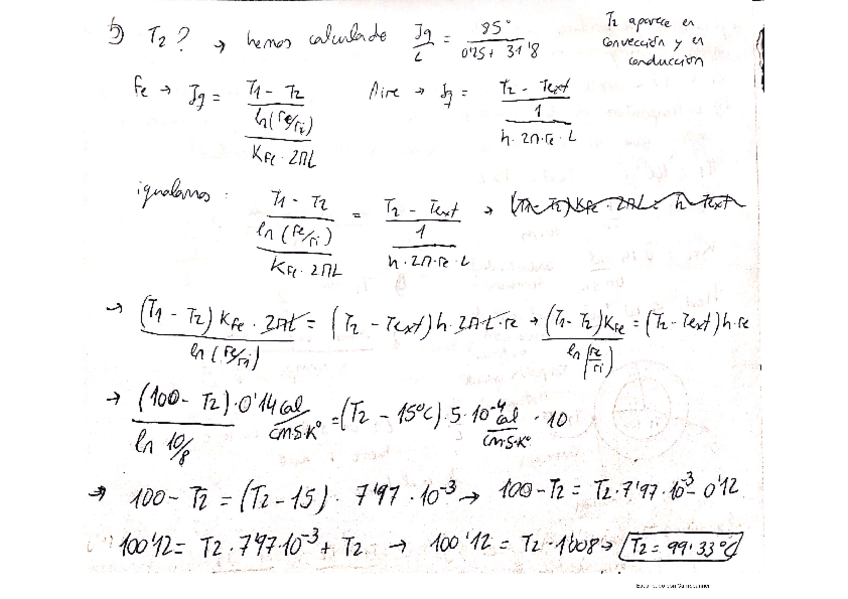 b) T2? → hemos calculado Jq/L = 85°/(0'25 + 31'8)
T2 aparece en
convección y en
conducción
Fe → Jq = (T1 - T2)/(ln(re/ri)/(KFe · 2πL)) Aire → Jq = (T2 - Text)/(1/(h · 2π · re · L))
igualamos: (T1 - T2)/(ln(re/ri)/(KFe · 2πL)) = (T2 - Text)/(1/(h · 2π · re · L)) →
→ (T1 - T2) KFe · 2πL/ln(re/ri) = (T2 - Text) h · 2π · L · re → (T1 - T2) KFe/ln(re/ri) = (T2 - Text) h · re
→ (100 - T2) · 0'14 cal/cm·s·K°/ln 10/8 = (T2 - 15°C) · 5 · 10⁻⁴ cal/cm·s·K° · 10
→ 100 - T2 = (T2 - 15) · 7'97 · 10⁻³ → 100 - T2 = T2 · 7'97 · 10⁻³ - 0'12
100'12 = T2 · 7'97 · 10⁻³ + T2 → 100'12 = T2 · 1'008 → T2 = 99'33°C